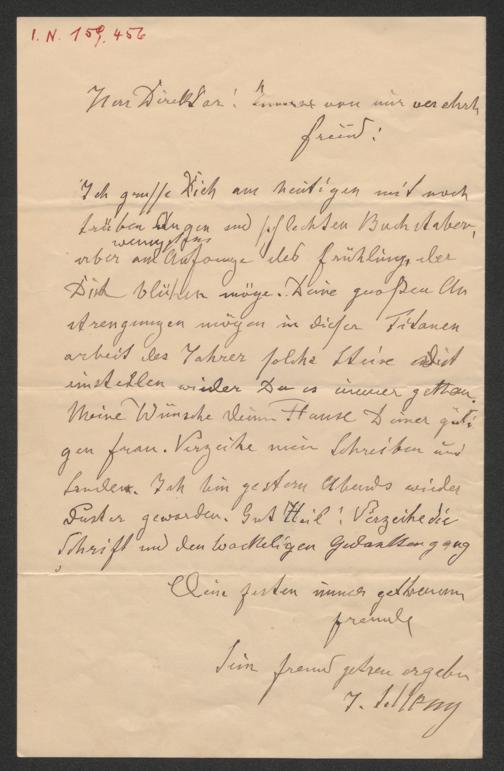 I. N. 159.456
Herr Direktor! Immer von mir verehrter
Freund!
Ich grüsse Dich am heutigen mit noch
trüben Augen und schlechten Buchstaben,
wenigstens
aber am Anfange des Frühlings, der
Dich blühen möge. Deine großen An
strengungen mögen in dieser Titanen
arbeit des Jahres solche Dich
einstellen wieder Du es immer gethan.
Meine Wünsche Deinem Hause Deiner güti
gen Frau. Verzeihe mein Schreiben und
Senden. Ich bin gestern Abends wieder
Duster geworden. Gut Heil! Verzeihe die
Schrift und den wackeligen Gedankengang
Deines festen immer getreuen
Freundes
Dein freund getreu ergeben
J.